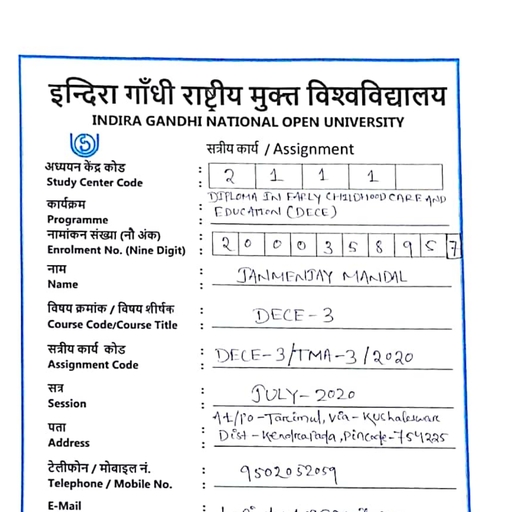 इन्दिरा गाँधी राष्ट्रीय मुक्त विश्वविद्यालय
INDIRA GANDHI NATIONAL OPEN UNIVERSITY
सत्रीय कार्य / Assignment
अध्ययन केंद्र कोड : 2 1 1 1
Study Center Code :
कार्यक्रम : DIPLOMA IN EARLY CHILDHOOD CARE AND
Programme : EDUCATION (DECE)
नामांकन संख्या (नौ अंक) : 2 0 0 0 3 5 8 9 5 7
Enrolment No. (Nine Digit) :
नाम : JANMENJAY MANDAL
Name :
विषय क्रमांक / विषय शीर्षक : DECE-3
Course Code/Course Title :
सत्रीय कार्य कोड : DECE-3/TMA-3/2020
Assignment Code :
सत्र : JULY-2020
Session :
At/po-Tarcimul, Via-Kuchaleswar
पता : Dist-Kendrapada, Pincode-754225
Address :
टेलीफोन / मोबाइल नं. : 9502052059
Telephone / Mobile No. :
E-Mail